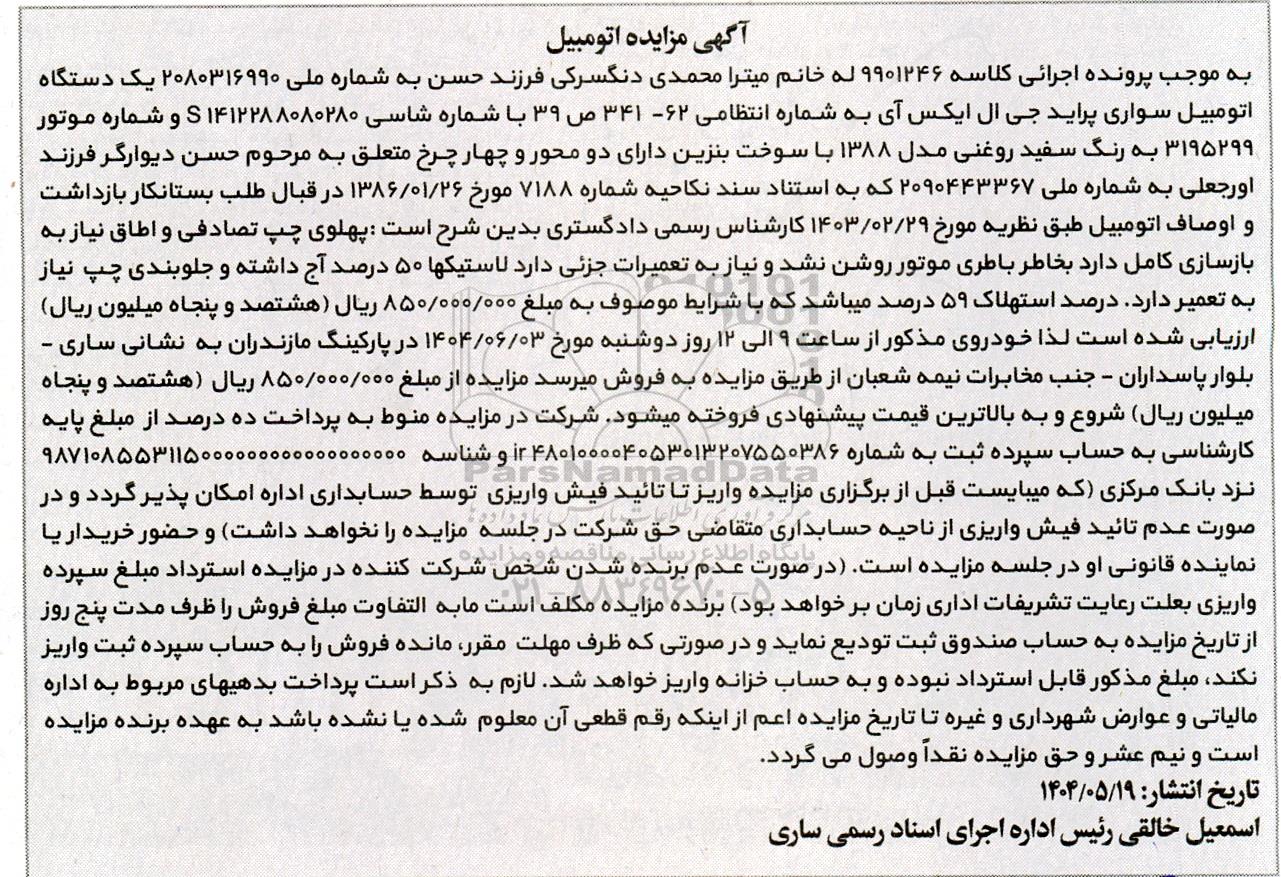 آگهی مزایده اتومبیل
به موجب پرونده اجرائی کلاسه ۹۹۰۱۲۴۶ له خانم میترا محمدی دنگسرکی فرزند حسن به شماره ملی ۲۰۸۰۳۱۶۹۹۰ یک دستگاه
اتومبیل سواری پراید جی ال ایکس آی به شماره انتظامی ۶۲- ۳۴۱ ص ۳۹ با شماره شاسی S ۱۴۱۲۲۸۸۰۸۰۲۸۰ و شماره موتور
۳۱۹۵۲۹۹ به رنگ سفید روغنی مدل ۱۳۸۸ با سوخت بنزین دارای دو محور و چهار چرخ متعلق به مرحوم حسن دیوارگر فرزند
اورجعلی به شماره ملی ۲۰۹۰۴۴۳۳۶۷ که به استناد سند نکاحیه شماره ۷۱۸۸ مورخ ۱۳۸۶/۰۱/۲۶ در قبال طلب بستانکار بازداشت
و اوصاف اتومبیل طبق نظریه مورخ ۱۴۰۳/۰۲/۲۹ کارشناس رسمی دادگستری بدین شرح است :پهلوی چپ تصادفی و اطاق نیاز به
بازسازی کامل دارد بخاطر باطری موتور روشن نشد و نیاز به تعمیرات جزئی دارد لاستیکها ۵۰ درصد آج داشته و جلوبندی چپ نیاز
به تعمیر دارد. درصد استهلاک ۵۹ درصد میباشد که با شرایط موصوف به مبلغ ۸۵۰/۰۰۰/۰۰۰ ریال (هشتصد و پنجاه میلیون ریال)
ارزیابی شده است لذا خودروی مذکور از ساعت ۹ الی ۱۲ روز دوشنبه مورخ ۱۴۰۴/۰۶/۰۳ در پارکینگ مازندران به نشانی ساری -
بلوار پاسداران - جنب مخابرات نیمه شعبان از طریق مزایده به فروش میرسد مزایده از مبلغ ۸۵۰/۰۰۰/۰۰۰ ریال (هشتصد و پنجاه
میلیون ریال) شروع و به بالاترین قیمت پیشنهادی فروخته میشود. شرکت در مزایده منوط به پرداخت ده درصد از مبلغ پایه
کارشناسی به حساب سپرده ثبت به شماره ir۴۸۰۱۰۰۰۰۴۰۵۳۰۱۳۲۰۷۵۵۰۳۸۶ و شناسه ۹۸۷۱۰۸۵۵۳۱۱۵۰۰۰۰۰۰۰۰۰۰۰۰۰۰۰۰۰
نزد بانک مرکزی (که میبایست قبل از برگزاری مزایده واریز تا تائید فیش واریزی توسط حسابداری اداره امکان پذیر گردد و در
صورت عدم تائید فیش واریزی از ناحیه حسابداری متقاضی حق شرکت در جلسه مزایده را نخواهد داشت) و حضور خریدار یا
نماینده قانونی او در جلسه مزایده است. (در صورت عدم برنده شدن شخص شرکت کننده در مزایده استرداد مبلغ سپرده
واریزی بعلت رعایت تشریفات اداری زمان بر خواهد بود) برنده مزایده مکلف است مابه التفاوت مبلغ فروش را ظرف مدت پنج روز
از تاریخ مزایده به حساب صندوق ثبت تودیع نماید و در صورتی که ظرف مهلت مقرر، مانده فروش را به حساب سپرده ثبت واریز
نکند، مبلغ مذکور قابل استرداد نبوده و به حساب خزانه واریز خواهد شد. لازم به ذکر است پرداخت بدهیهای مربوط به اداره
مالیاتی و عوارض شهرداری و غیره تا تاریخ مزایده اعم از اینکه رقم قطعی آن معلوم شده یا نشده باشد به عهده برنده مزایده
است و نیم عشر و حق مزایده نقداً وصول می گردد.
تاریخ انتشار: ۱۴۰۴/۰۵/۱۹
اسمعیل خالقی رئیس اداره اجرای اسناد رسمی ساری
ParsNamadData
پایگاه اطلاع رسانی مناقصه و مزایده
۰۲۱-۸۸۳۴۹۶۷۰-۵